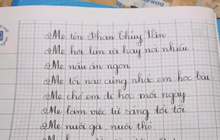 Mẹ tên Phan Thùy Vân
Mẹ hơi lùn và hay nói nhiều
Mẹ nấu ăn ngon
Mẹ tối nào cũng nhắc em học bài
Mẹ chở em đi học mỗi ngày
Mẹ làm việc từ sáng tới tối
Mẹ nuôi gà, nuôi thỏ